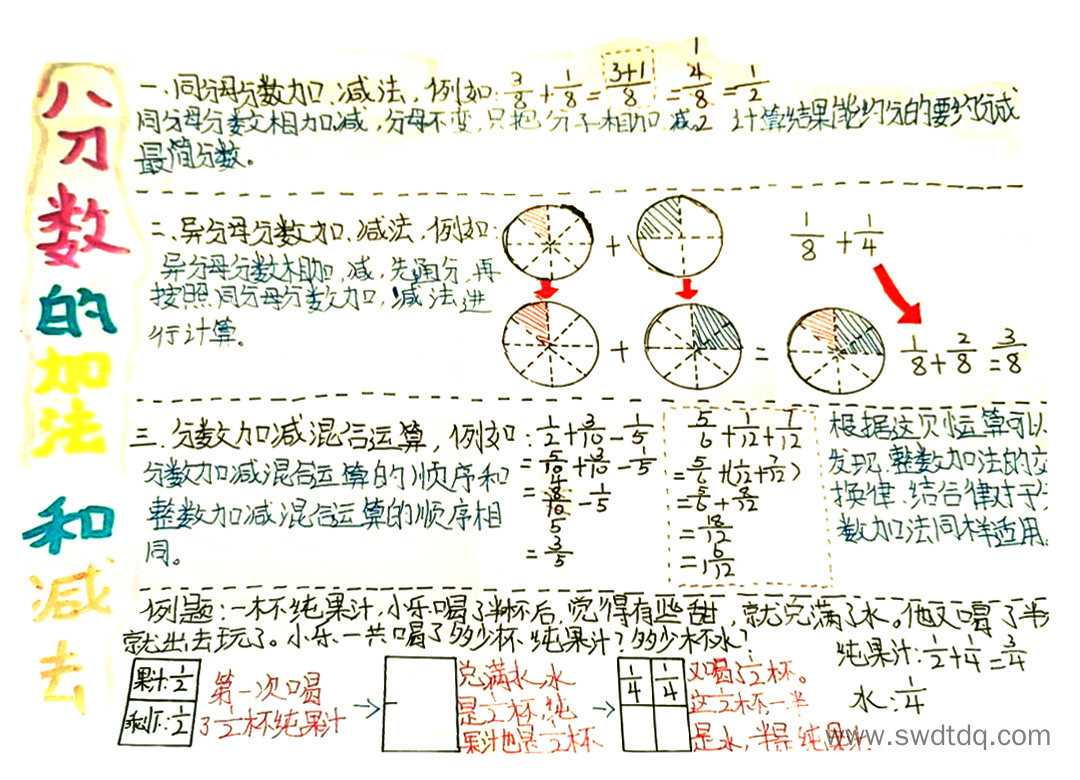 八分数的加法 和减去
一.同分母分数加、减法,例如: 3/8 + 1/8 = 3+1/8 = 4/8 = 1/2
1
2
同分母分数相加减,分母不变,只把分子相加减。计算结果能约分的要约分成
最简分数。
二、异分母分数加、减法,例如:
异分母分数相加,减,先通分,再
按照同分母分数加,减法进
行计算。
+
1/8 + 1/4
+ =
1/8 + 2/8 = 3/8
三.分数加减混合运算,例如:
分数加减混合运算的顺序和
整数加减混合运算的顺序相
同。
1/2 + 3/10 - 1/5
= 5/10 + 3/10 - 1/5
4
= 8/10 - 1/5
5
= 3/5
5/6 + 1/12 + 7/12
= 5/6 + (1/12 + 7/12)
= 5/6 + 8/12
= 18/12
= 1 6/12
根据这贝运算可以
发现,整数加法的交
换律、结合律对于
数加法同样适用.
例题:一杯纯果汁,小乐喝了半杯后,觉得有些甜,就兑满了水。他又喝了半
就出去玩了。小乐一共喝了多少杯纯果汁?多少杯水?
果汁:1/2
剩下:1/2
第一次喝
了1/2杯纯果汁
兑满水,水
是1/2杯,纯
果汁也是1/2杯
1/4 1/4
又喝了1/2杯。
这1/2杯一半
是水,半是纯果汁
纯果汁:1/2+1/4=3/4
水:1/4
www.swdtdq.com